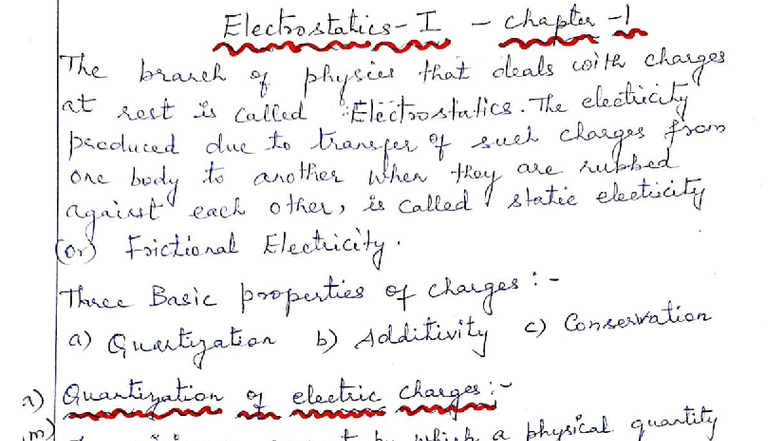 Electrostatics - I - chapter - 1
The branch of physics that deals with charges
at rest is called "Electrostatics. The electricity
produced due to transfer of such charges from
one body to another when they are rubbed
against each other, is called static electricity
(or) Frictional Electricity.
Three Basic properties of charges :-
a) Quantization b) Additivity c) Conservation
a) Quantization of electric charges :-
m) which a physical quantity